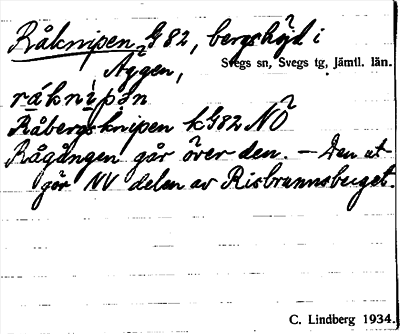 Råknipen, G 82, bergshöjd i
Äggen,
Svegs sn, Svegs tg, Jämtl. län.
råknìpən
Råbergsknipen k G82 NO
Rågången går över den. — Den ut-
gör NV delen av Risbrunnsberget.
C. Lindberg 1934.